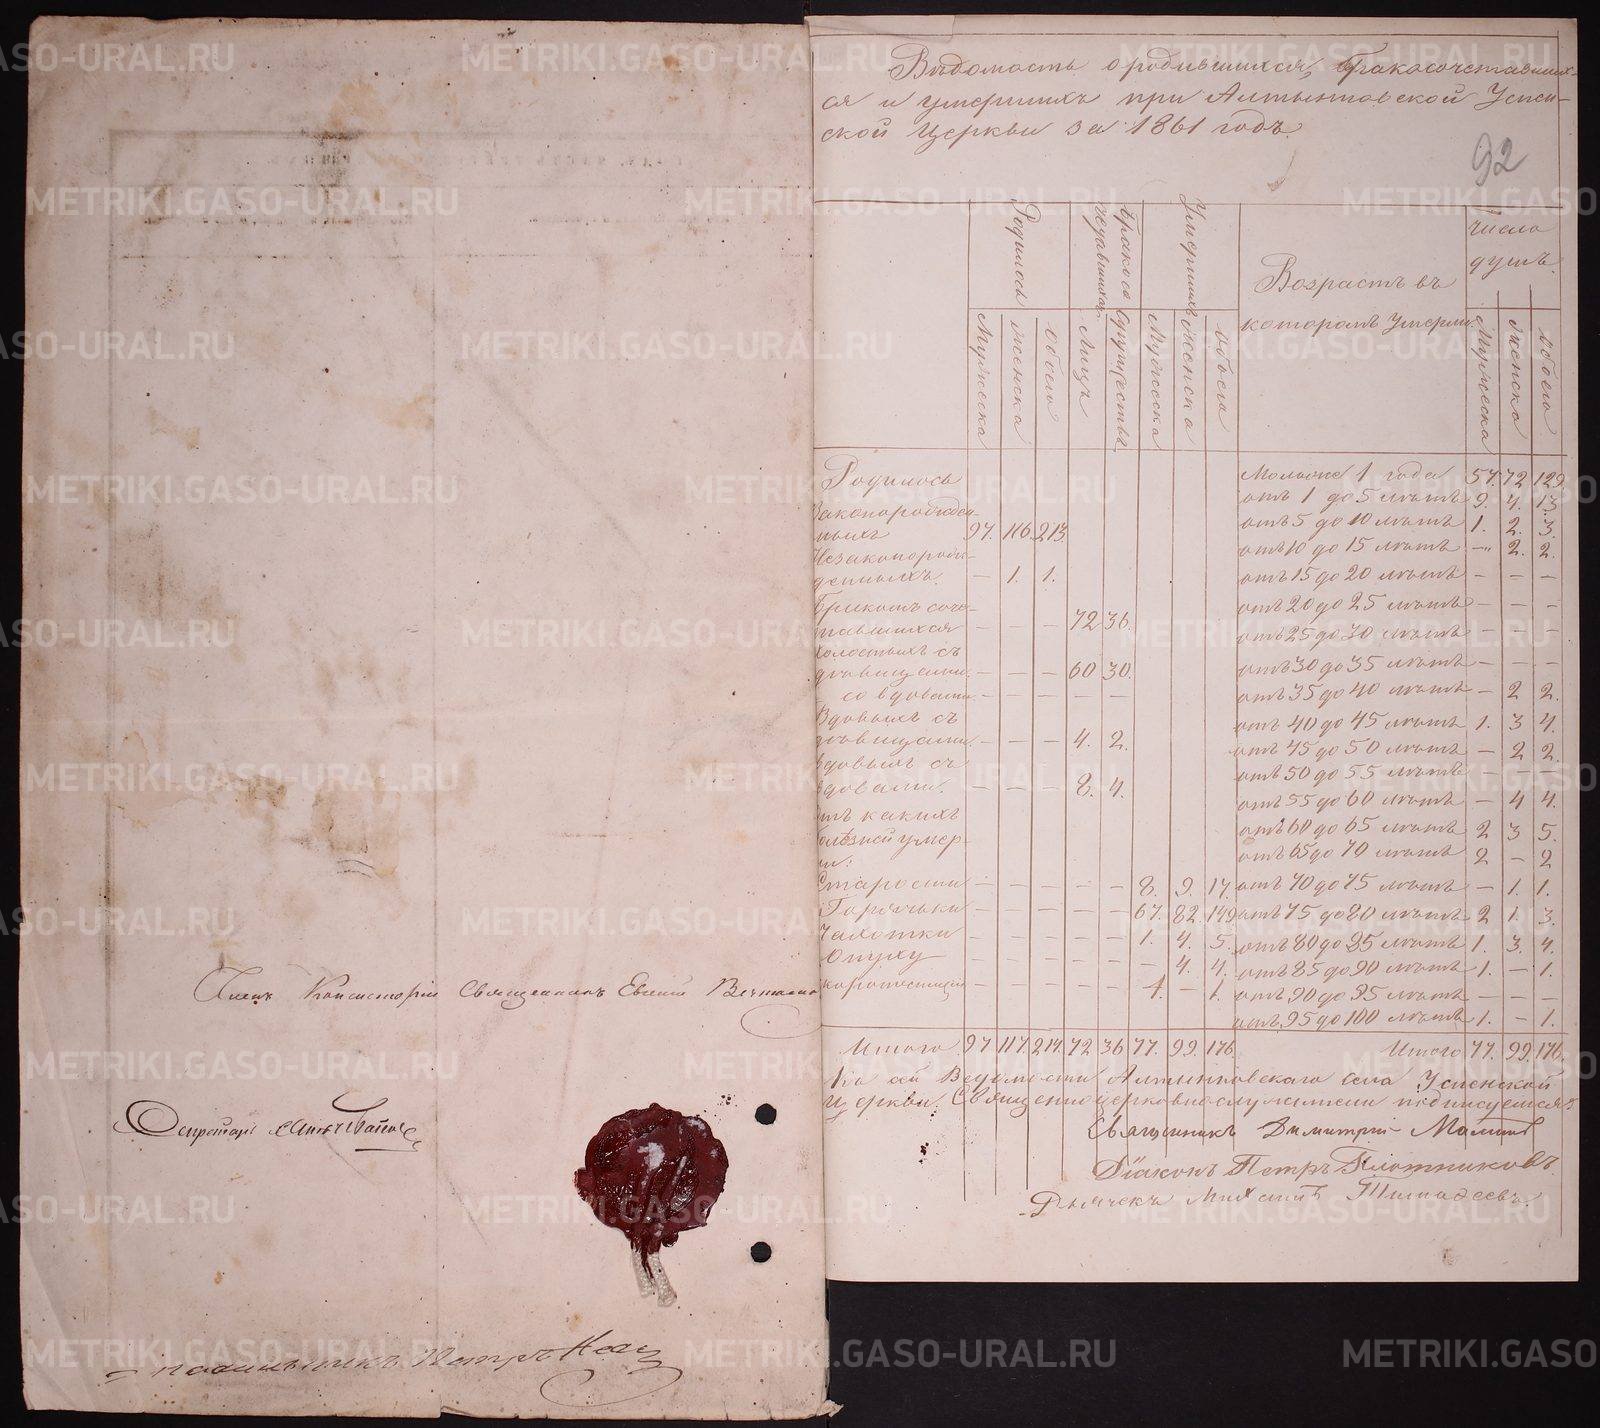 Членъ Консисторіи Священникъ Евгеній
Секретарь
Петръ
Ведомость о родившихся, бракосочетавших-
ся и умершихъ при Алтынновской Успен-
ской Церкви за 1861 годъ
92
Родилось
Бракосо
Умершихъ
Возрастъ въ
которомъ Умерли
Число
душъ.
Мужеска
Женска
Обоего
Лицъ
Супружествъ
Мужеска
Женска
Обоего
Мужеска
Женска
Обоего
Родилось
Законорожден-
ныхъ 97. 116. 213.
Незаконорож-
денныхъ. — 1. 1.
Бракомъ соче-
тавшихся — — — 72 36.
холостыхъ съ
девицами. — — — 60 30.
со вдовами. — — — — —
Вдовыхъ съ
девицами. — — — 4. 2.
вдовыхъ съ
вдовами. — — — 8. 4.
отъ какихъ
болезней умер-
ли:
Старости — — — — — 8. 9. 17.
Горячьки — — — — — 67. 82. 149
Чахотки — — — — — 1. 4. 5.
Опуху — — — — — — 4. 4.
— — — — — 1. — 1.
Итого 97 117. 214. 72 36 77. 99. 176
1 года 57. 72 129
отъ 1 до 5 летъ 9. 4. 13.
отъ 5 до 10 летъ 1. 2. 3.
отъ 10 до 15 летъ —" 2. 2.
отъ 15 до 20 летъ — — —
отъ 20 до 25 летъ — — —
отъ 25 до 30 летъ — — —
отъ 30 до 35 летъ — — —
отъ 35 до 40 летъ — 2 2.
отъ 40 до 45 летъ 1. 3 4.
отъ 45 до 50 летъ — 2 2.
отъ 50 до 55 летъ — — —
отъ 55 до 60 летъ — 4 4.
отъ 60 до 65 летъ 2 3 5.
отъ 65 до 70 летъ 2 — 2
отъ 70 до 75 летъ — 1. 1.
отъ 75 до 80 летъ 2 1. 3.
отъ 80 до 85 летъ 1. 3. 4.
отъ 85 до 90 летъ 1. — 1.
отъ 90 до 95 летъ — — —
отъ 95 до 100 летъ 1. — 1.
Итого 77. 99. 176.
Къ сей Ведомости Алтынновскаго села Успенской
церкви. Священноцерковнослужители подписуемся:
Священникъ Димитрий
Діаконъ Петръ Плотниковъ.
Дьячекъ Михаилъ
METRIKI.GASO-URAL.RU